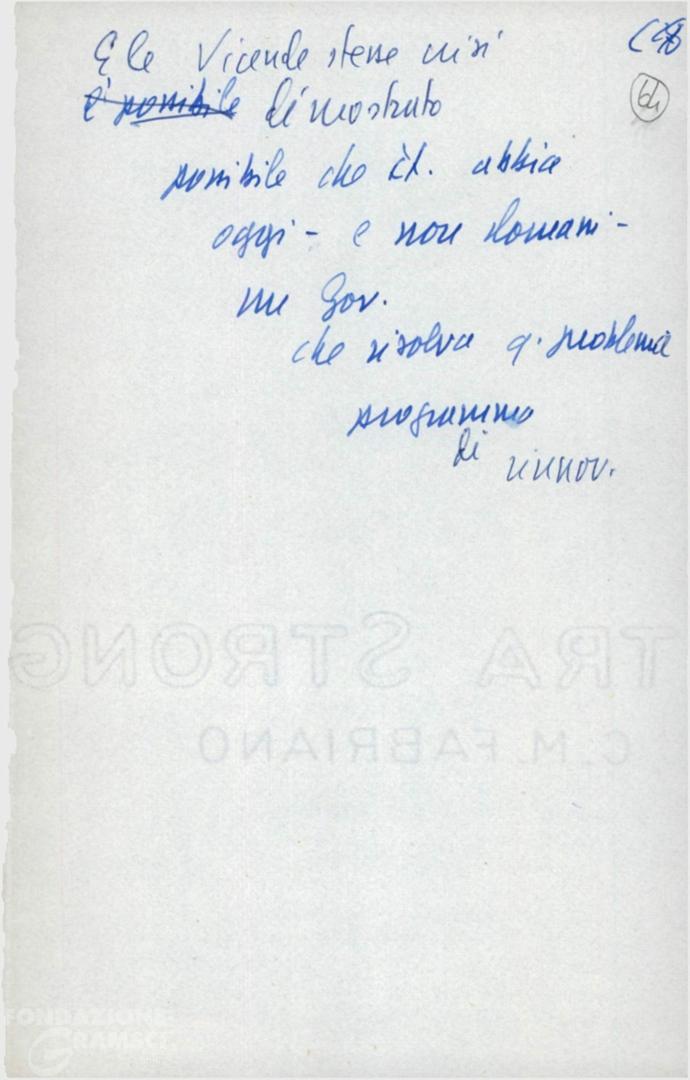 E le vicende stesse crisi
è possibile dimostrato
64
possibile che it. abbia
oggi - e non domani -
un Gov.
che risolva q. problemi
programma
di rinnov.
TRA STRONG
C.M. FABRIANO
FONDAZIONE
GRAMSCI